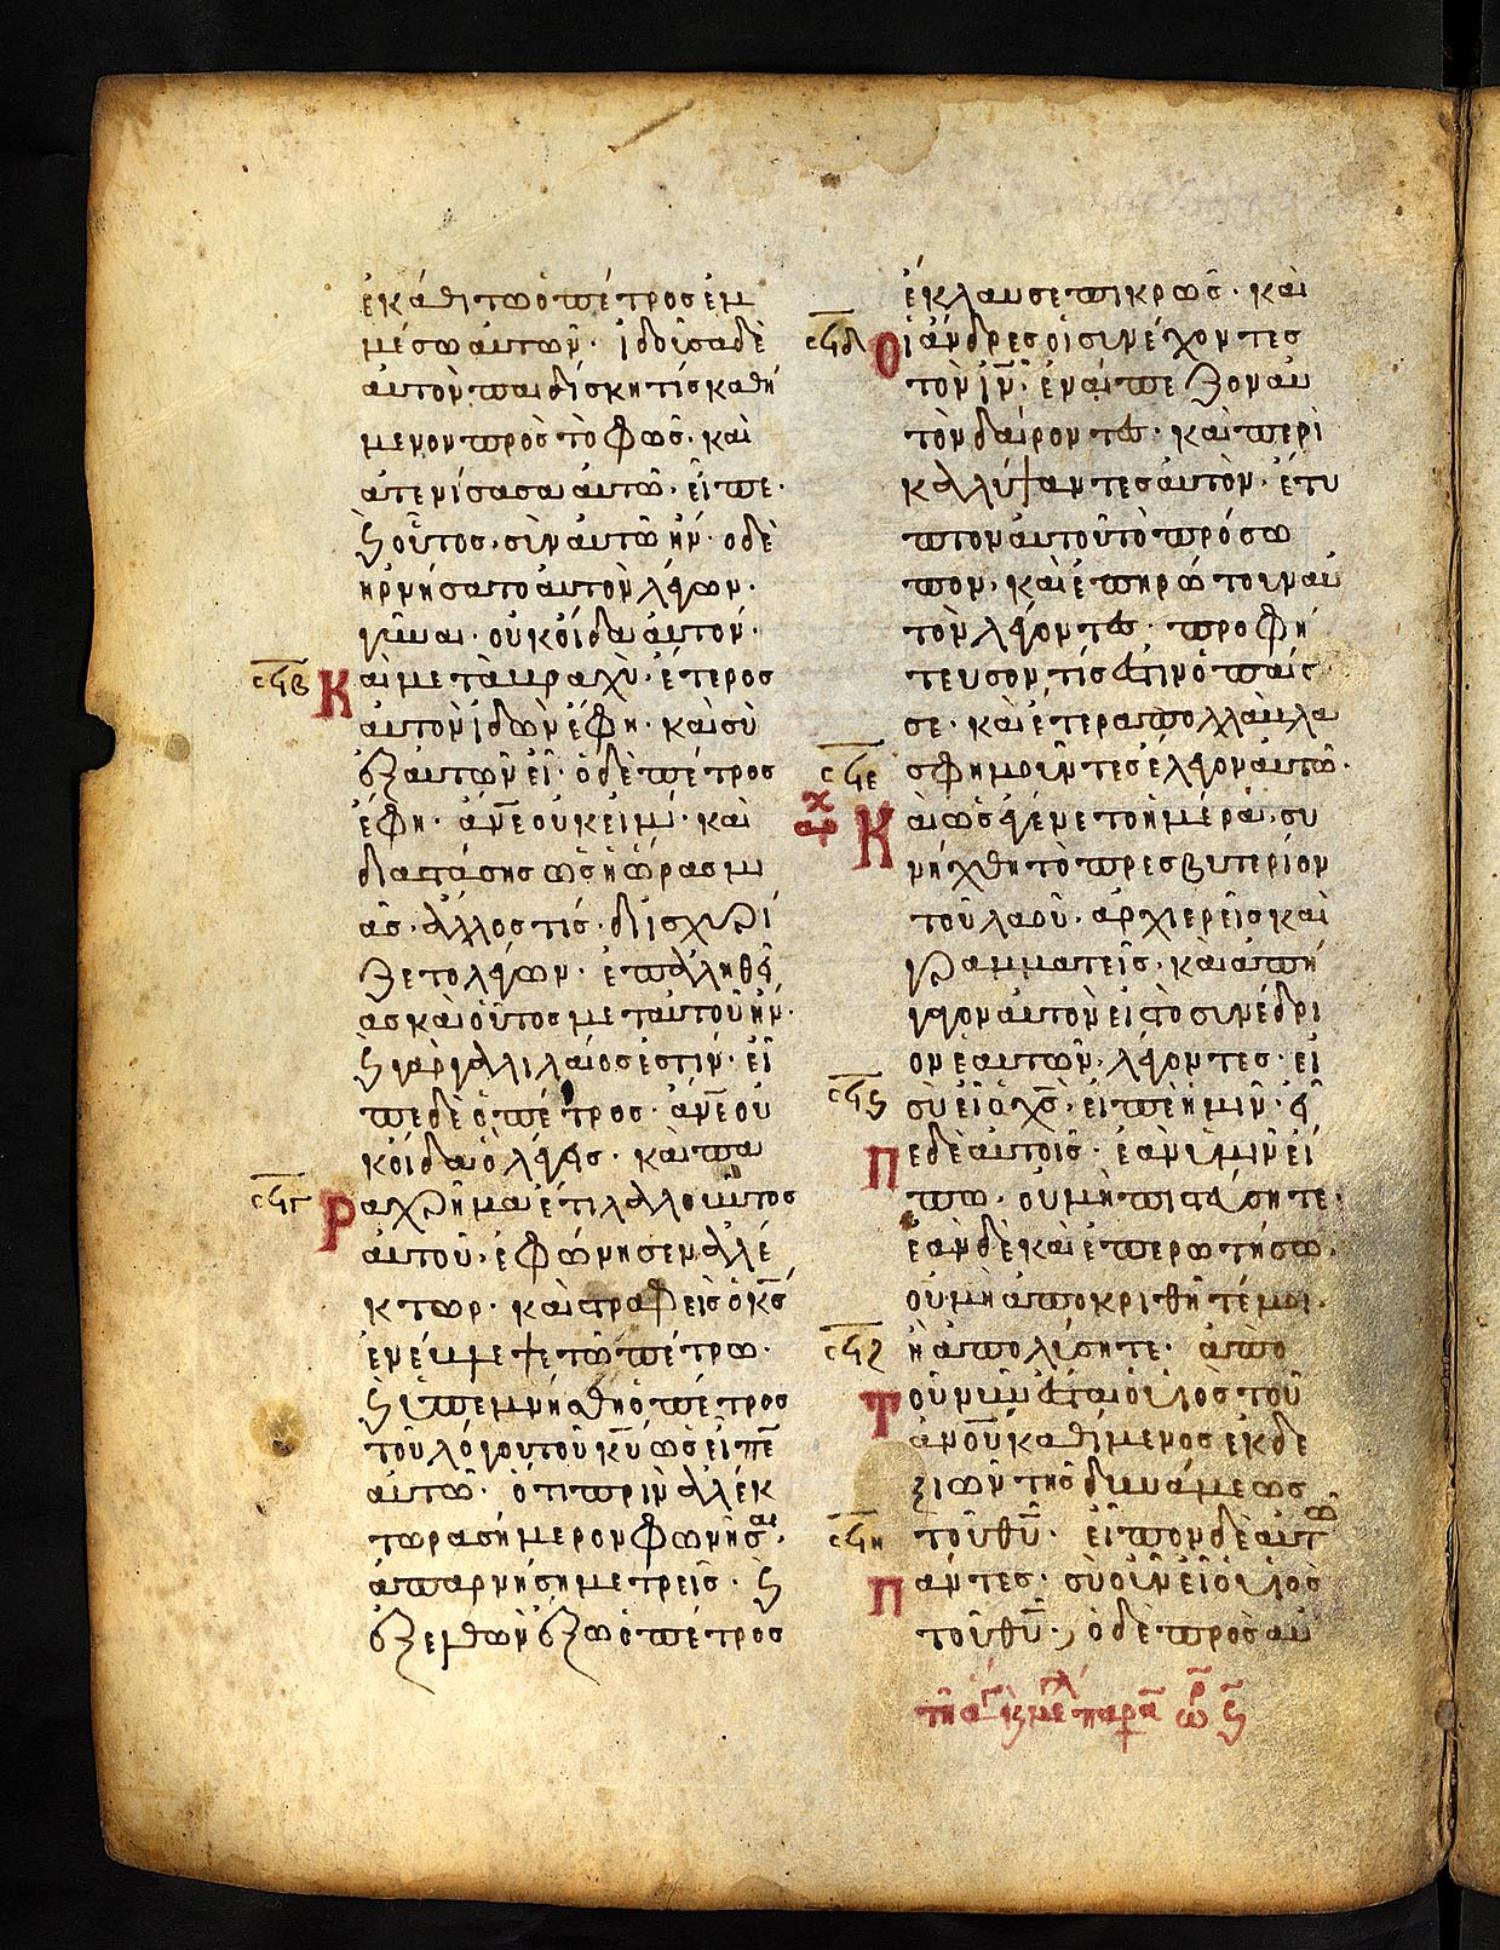 ἐκάθητω ὁ πέτρος ἐμ
μέσω αὐτῶν· ἰδοῦσα δὲ
αὐτὸν παιδίσκη τίς καθή
μενον πρὸς τὸ φῶς· καὶ
ἀτενίσασα αὐτῶ· εἶπε·
ϗ οὗτος· σὺν αὐτῶ ἦν· ὁ δὲ
ἠρνήσατο αὐτὸν λέγων·
γύναι· οὐκ οἶδα αὐτόν·
σϟβ
Καὶ μετὰ βραχὺ· ἕτερος
αὐτὸν ἰδὼν ἔφη· καὶ σὺ
ἐξ αὐτῶν εἶ· ὁ δὲ πέτρος
ἔφη· ἄνε οὐκ εἰμί· καὶ
διαστάσης ὡσὴ ὥρας μι
ᾶς· ἄλλος τίς· διϊσχυρί
ζετο λέγων· ἐπ' ἀληθεί
ας καὶ οὗτος μετ' αὐτοῦ ἦν·
ϗ γὰρ γαλιλαῖος ἐστίν· εἶ
πε δὲ ὁ πέτρος· ἄνε οὐ
κ οἶδα ὃ λέγεις· καὶ πα
σϟγ
Ραχρῆμα ἔτι λαλοῦντος
αὐτοῦ· ἐφώνησεν ἀλέ
κτωρ· καὶ στραφεὶς ὁ κς
ἐνέβλεψε τῶ πέτρω·
ϗ ὑπεμνήσθη ὁ πέτρος
τοῦ λόγου τοῦ κυ ὡς εἶπε
αὐτῶ· ὅτι πρὶν ἀλέκ
τωρα σήμερον φωνῆσαι·
ἀπαρνήση με τρεῖς· ϗ
ἐξελθὼν ἔξω ὁ πέτρος
ἔκλαυσε πικρῶς· καὶ
σϟδ
Οἱ ἄνδρες οἱ συνέχοντες
τὸν ιν· ἐνέπεζον αὐ
τὸν δαίροντες· καὶ περι
καλύψαντες αὐτὸν· ἔτυ
πτον αὐτοῦ τὸ πρόσω
πον· καὶ ἐπηρώτουν αὐ
τὸν λέγοντες· προφή
τευσον, τίς ἐστιν ὁ παίς
σε· καὶ ἕτερα πολλὰ βλα
σφημοῦντες ἔλεγον αὐτῶ·
σϟε
αρχ
Καὶ ὡς ἐγένετο ἡμέρα· συ
νήχθη τὸ πρεσβυτέριον
τοῦ λαοῦ· ἀρχιερεῖς καὶ
γραμματεῖς· καὶ ἀπή
γαγον αὐτὸν εἰς τὸ συνέδρι
ον ἑαυτῶν· λέγοντες· εἰ
σϟϛ
σὺ εἶ ὁ χς· εἰπὲ ἡμῖν· εἶ
Πε δὲ αὐτοῖς· ἐὰν ὑμῖν εἴ
πω· οὐ μὴ πιστεύσητε·
ἐὰν δὲ καὶ ἐπερωτήσω·
οὐ μὴ ἀποκριθῆτέ μοι·
σϟζ
ἢ ἀπολύσητε· ἀπὸ
Τοῦ νῦν ἔσται ὁ υἱὸς τοῦ
ἀνου καθήμενος ἐκ δε
ξιῶν τῆς δυνάμεως
σϟη
τοῦ θυ· εἶπον δὲ αὐτῶ
Πάντες· σὺ οὖν εἶ ὁ υἱὸς
τοῦ θυ·, ὁ δὲ πρὸς αὐ